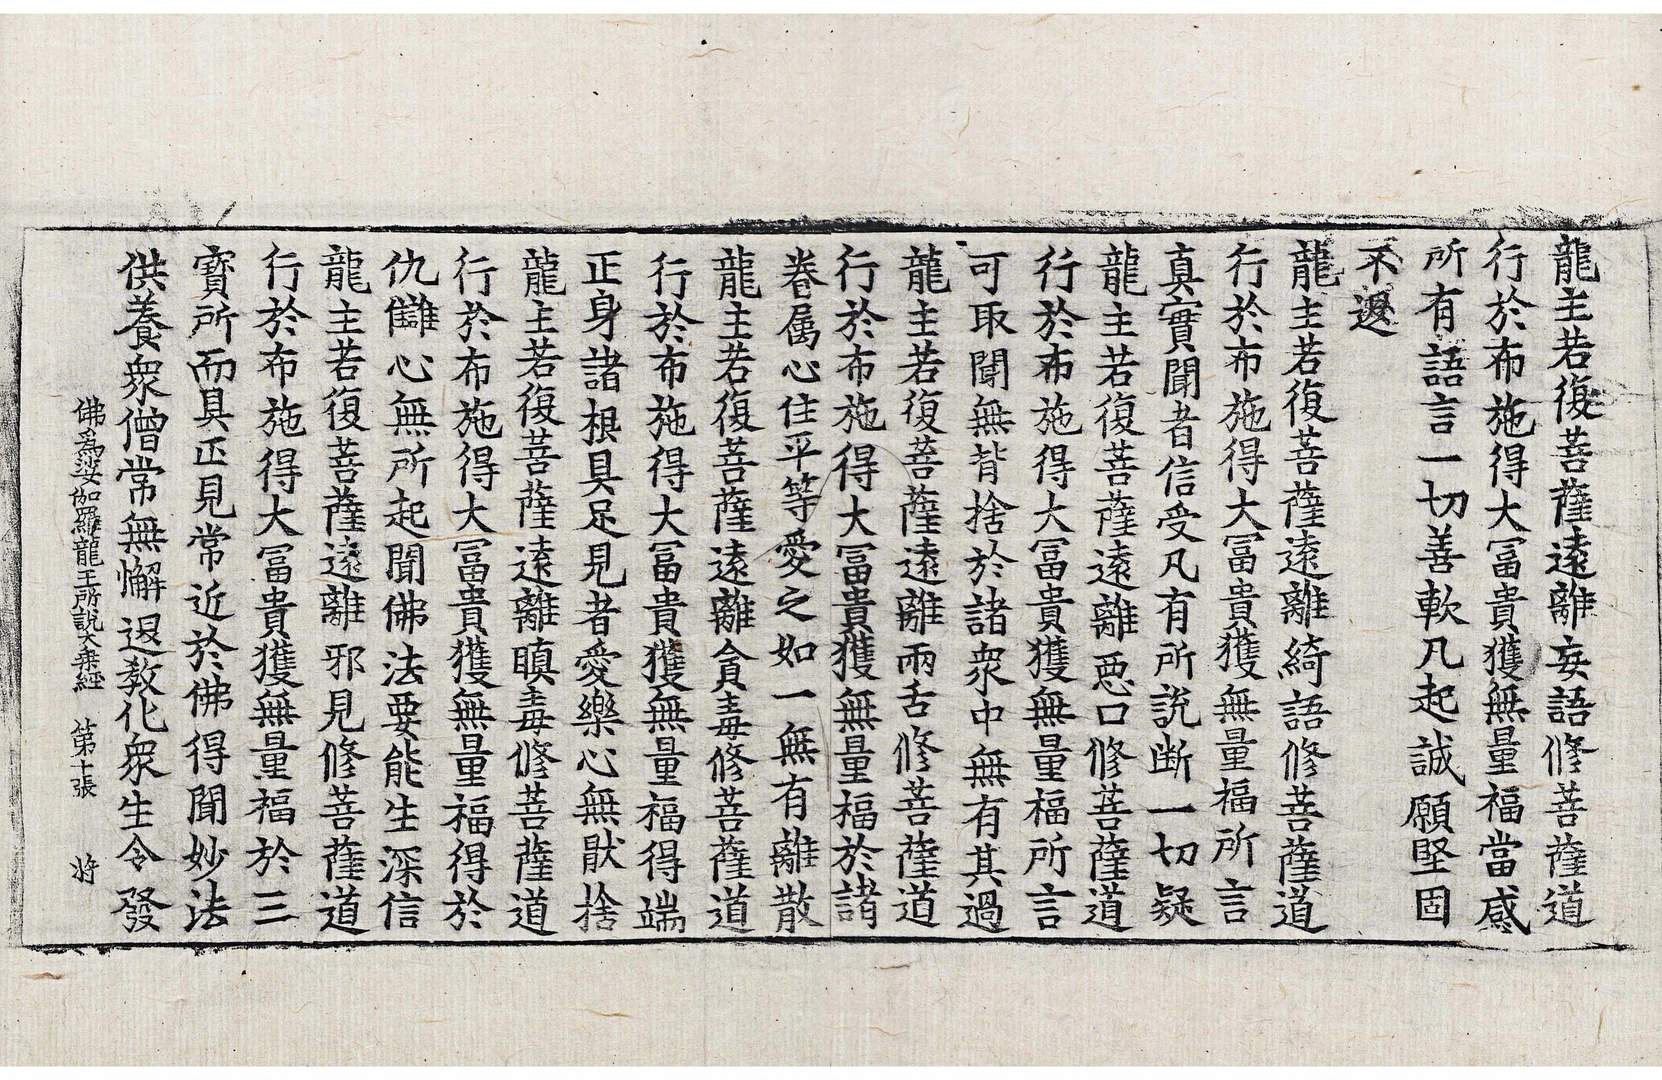 龍主若復菩薩遠離妄語修菩薩道
行於布施得大冨貴獲無量福當感
所有語言一切善軟凡起誠願堅固
不退
龍主若復菩薩遠離綺語修菩薩道
行於布施得大冨貴獲無量福所言
真實聞者信受凡有所說断一切疑
龍主若復菩薩遠離惡口修菩薩道
行於布施得大冨貴獲無量福所言
可取聞無背捨於諸衆中無有其過
龍主若復菩薩遠離兩舌修菩薩道
行於布施得大冨貴獲無量福於諸
眷属心住平等愛之如一無有離散
龍主若復菩薩遠離貪毒修菩薩道
行於布施得大冨貴獲無量福得端
正身諸根具足見者愛樂心無猒捨
龍主若復菩薩遠離瞋毒修菩薩道
行於布施得大冨貴獲無量福得於
仇讎心無所起聞佛法要能生深信
龍主若復菩薩遠離邪見修菩薩道
行於布施得大冨貴獲無量福於三
寳所而具正見常近於佛得聞妙法
供養衆僧常無懈退教化衆生令發
佛爲娑伽羅龍王所說大乗經 第十張 将